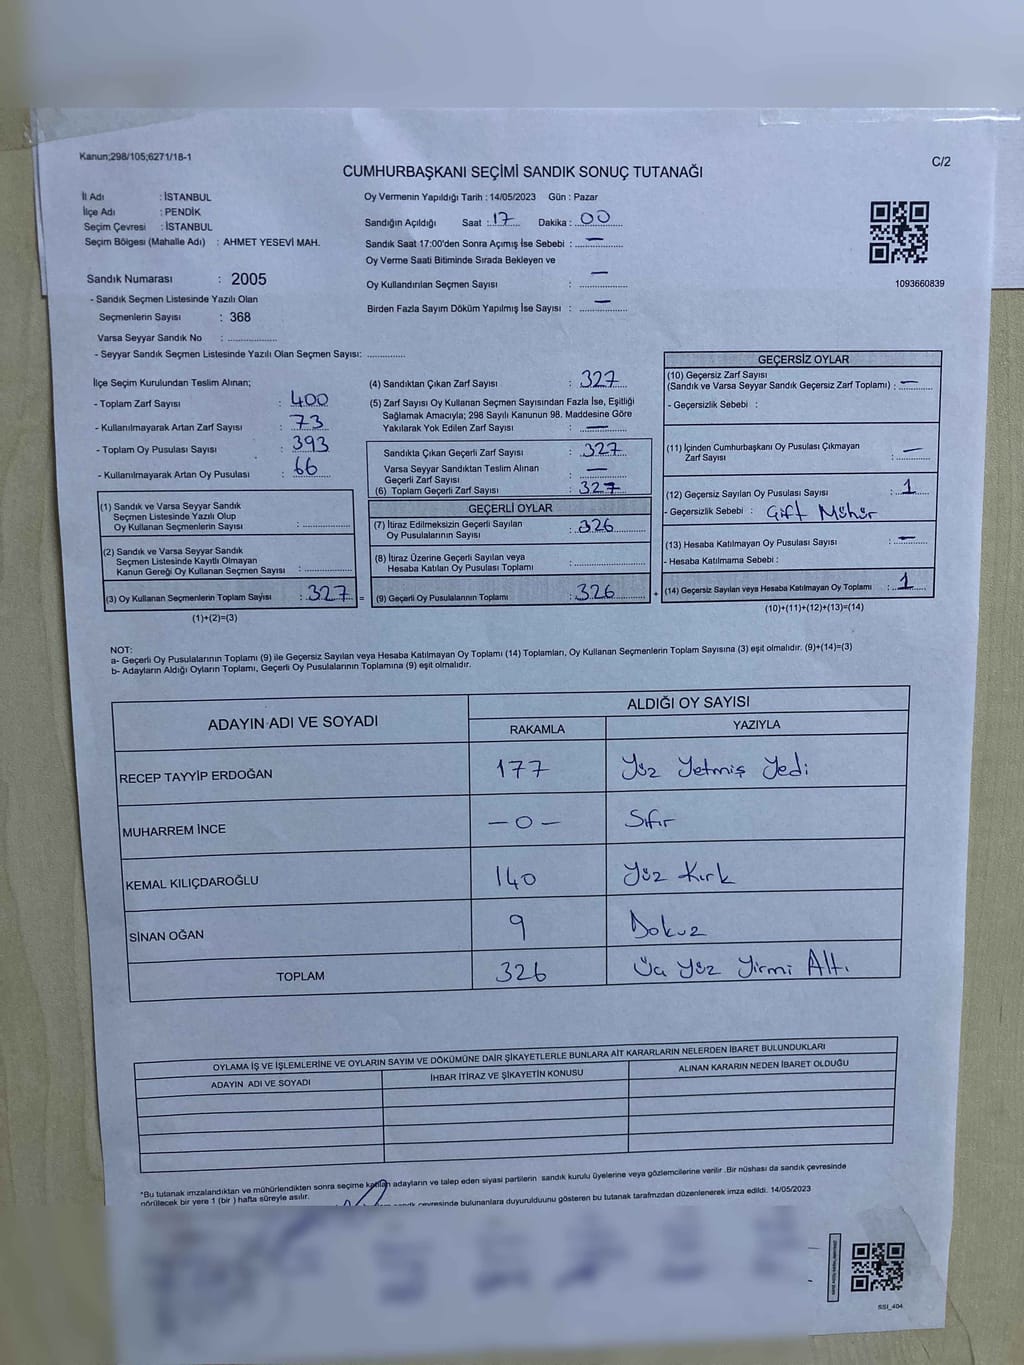 Kanun;298/105;6271/18-1
C/2
CUMHURBAŞKANI SEÇİMİ SANDIK SONUÇ TUTANAĞI
İl Adı : İSTANBUL
İlçe Adı : PENDİK
Seçim Çevresi : İSTANBUL
Seçim Bölgesi (Mahalle Adı) : AHMET YESEVİ MAH.
Sandık Numarası : 2005
- Sandık Seçmen Listesinde Yazılı Olan
Seçmenlerin Sayısı : 368
Varsa Seyyar Sandık No : ..................
- Seyyar Sandık Seçmen Listesinde Yazılı Olan Seçmen Sayısı: ..............
Oy Vermenin Yapıldığı Tarih : 14/05/2023 Gün : Pazar
Sandığın Açıldığı Saat : 17 Dakika : 00
Sandık Saat 17:00'den Sonra Açımış İse Sebebi : —
Oy Verme Saati Bitiminde Sırada Bekleyen ve
Oy Kullandırılan Seçmen Sayısı : —
Birden Fazla Sayım Döküm Yapılmış İse Sayısı : —
1093660839
İlçe Seçim Kurulundan Teslim Alınan;
- Toplam Zarf Sayısı : 400
- Kullanılmayarak Artan Zarf Sayısı : 73
- Toplam Oy Pusulası Sayısı : 393
- Kullanılmayarak Artan Oy Pusulası : 66
(1) Sandık ve Varsa Seyyar Sandık
Seçmen Listesinde Yazılı Olup
Oy Kullanan Seçmenlerin Sayısı : ..................
(2) Sandık ve Varsa Seyyar Sandık
Seçmen Listesinde Kayıtlı Olmayan
Kanun Gereği Oy Kullanan Seçmen Sayısı : ..................
(3) Oy Kullanan Seçmenlerin Toplam Sayısı : 327 =
(1)+(2)=(3)
(4) Sandıktan Çıkan Zarf Sayısı : 327
(5) Zarf Sayısı Oy Kullanan Seçmen Sayısından Fazla İse, Eşitliği
Sağlamak Amacıyla; 298 Sayılı Kanunun 98. Maddesine Göre
Yakılarak Yok Edilen Zarf Sayısı : —
Sandıkta Çıkan Geçerli Zarf Sayısı : 327
Varsa Seyyar Sandıktan Teslim Alınan
Geçerli Zarf Sayısı : —
(6) Toplam Geçerli Zarf Sayısı : 327
GEÇERLİ OYLAR
(7) İtiraz Edilmeksizin Geçerli Sayılan
Oy Pusulalarının Sayısı : 326
(8) İtiraz Üzerine Geçerli Sayılan veya
Hesaba Katılan Oy Pusulası Toplamı : ..................
(9) Geçerli Oy Pusulalarının Toplamı : 326 +
GEÇERSİZ OYLAR
(10) Geçersiz Zarf Sayısı
(Sandık ve Varsa Seyyar Sandık Geçersiz Zarf Toplamı) : —
- Geçersizlik Sebebi :
(11) İçinden Cumhurbaşkanı Oy Pusulası Çıkmayan
Zarf Sayısı : —
(12) Geçersiz Sayılan Oy Pusulası Sayısı : 1
- Geçersizlik Sebebi : Çift Mühür
(13) Hesaba Katılmayan Oy Pusulası Sayısı : —
- Hesaba Katılmama Sebebi :
(14) Geçersiz Sayılan veya Hesaba Katılmayan Oy Toplamı : 1
(10)+(11)+(12)+(13)=(14)
NOT:
a- Geçerli Oy Pusulalarının Toplamı (9) ile Geçersiz Sayılan veya Hesaba Katılmayan Oy Toplamı (14) Toplamları, Oy Kullanan Seçmenlerin Toplam Sayısına (3) eşit olmalıdır. (9)+(14)=(3)
b- Adayların Aldığı Oyların Toplamı, Geçerli Oy Pusulalarının Toplamına (9) eşit olmalıdır.
ADAYIN ADI VE SOYADI
ALDIĞI OY SAYISI
RAKAMLA YAZIYLA
RECEP TAYYİP ERDOĞAN 177 Yüz Yetmiş Yedi
MUHARREM İNCE — 0 — Sıfır
KEMAL KILIÇDAROĞLU 140 Yüz Kırk
SİNAN OĞAN 9 Dokuz
TOPLAM 326 Üç Yüz Yirmi Altı.
OYLAMA İŞ VE İŞLEMLERİNE VE OYLARIN SAYIM VE DÖKÜMÜNE DAİR ŞİKAYETLERLE BUNLARA AİT KARARLARIN NELERDEN İBARET BULUNDUKLARI
ADAYIN ADI VE SOYADI İHBAR İTİRAZ VE ŞİKAYETİN KONUSU ALINAN KARARIN NEDEN İBARET OLDUĞU
*Bu tutanak imzalandıktan ve mühürlendikten sonra seçime katılan adayların ve talep eden siyasi partilerin sandık kurulu üyelerine veya gözlemcilerine verilir .Bir nüshası da sandık çevresinde
görülecek bir yere 1 (bir ) hafta süreyle asılır.
sandık çevresinde bulunanlara duyurulduunu gösteren bu tutanak tarafmzdan düzenlenerek imza edildi. 14/05/2023
SSI_404